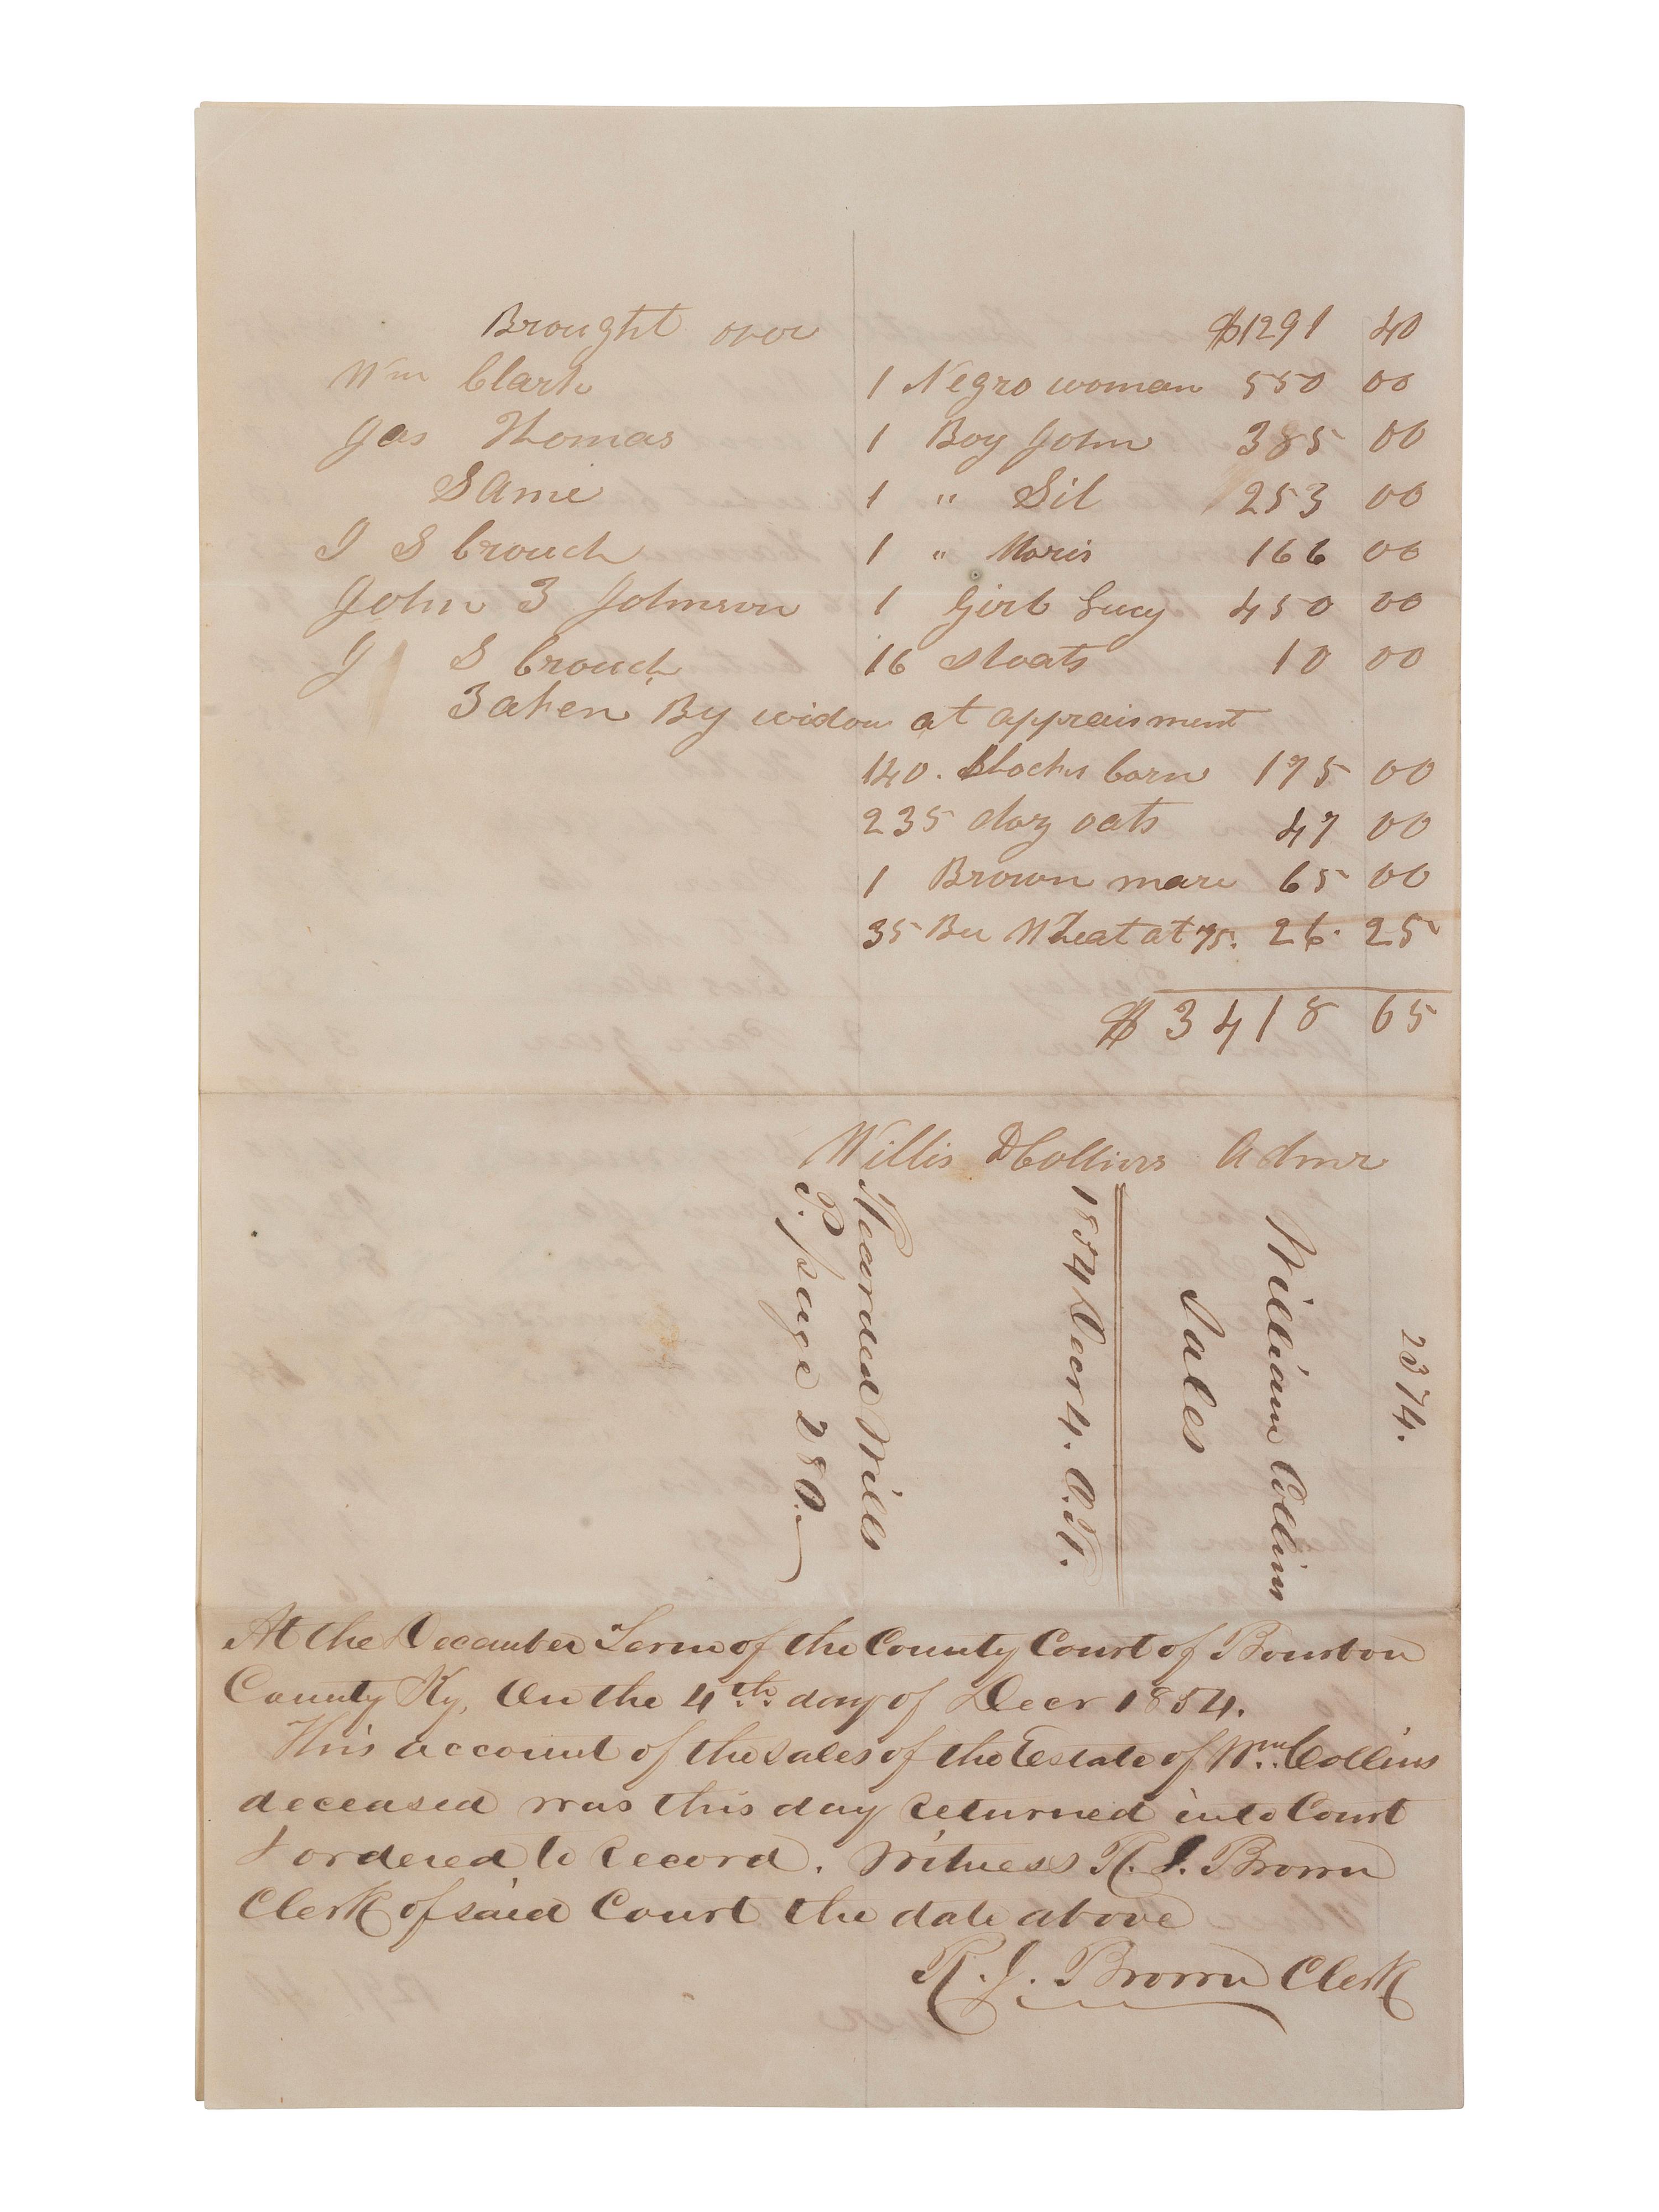 Brought over $1291 40
Wm Clark 1 Negro woman 550 00
Jas Thomas 1 Boy John 385 00
Same 1 " Sil 253 00
J S Crouch 1 " Moris 166 00
John T Johnson 1 Girl Lucy 450 00
J S Crouch 16 Shoats 10 00
Taken By widow at appraisment
140. Shocks Corn 175 00
235 doz oats 47 00
1 Brown mare 65 00
35 Bu Wheat at 75. 26. 25
$ 3418 65
Willis D Collins Admr
2374.
William Collins
Sales
1854 Decr 4. O.R.
Recorded Wills
P. page 280.
At the December Term of the County Court of Bourbon
County Ky, On the 4th. day of Decr 1854.
This account of the sales of the Estate of Wm. Collins
deceased was this day returned into Court
& ordered to record. Witness R. J. Brown
Clerk of said Court the date above
R. J. Brown Clerk